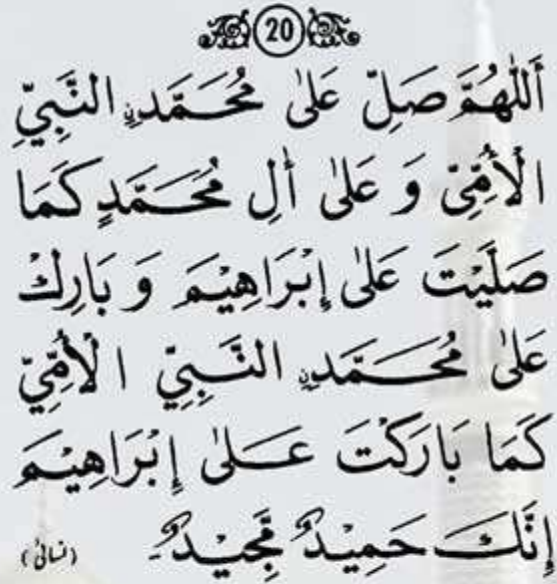 20
أَللّٰهُمَّ صَلِّ عَلٰى مُحَمَّدِنِ النَّبِيِّ
الْأُمِّيِّ وَ عَلٰى أٰلِ مُحَمَّدٍ كَمَا
صَلَّيْتَ عَلٰى إِبْرَاهِيْمَ وَ بَارِكْ
عَلٰى مُحَمَّدِنِ النَّبِيِّ الْأُمِّيِّ
كَمَا بَارَكْتَ عَلٰى إِبْرَاهِيْمَ
إِنَّكَ حَمِيْدٌ مَّجِيْدٌ۔ (نسائی)